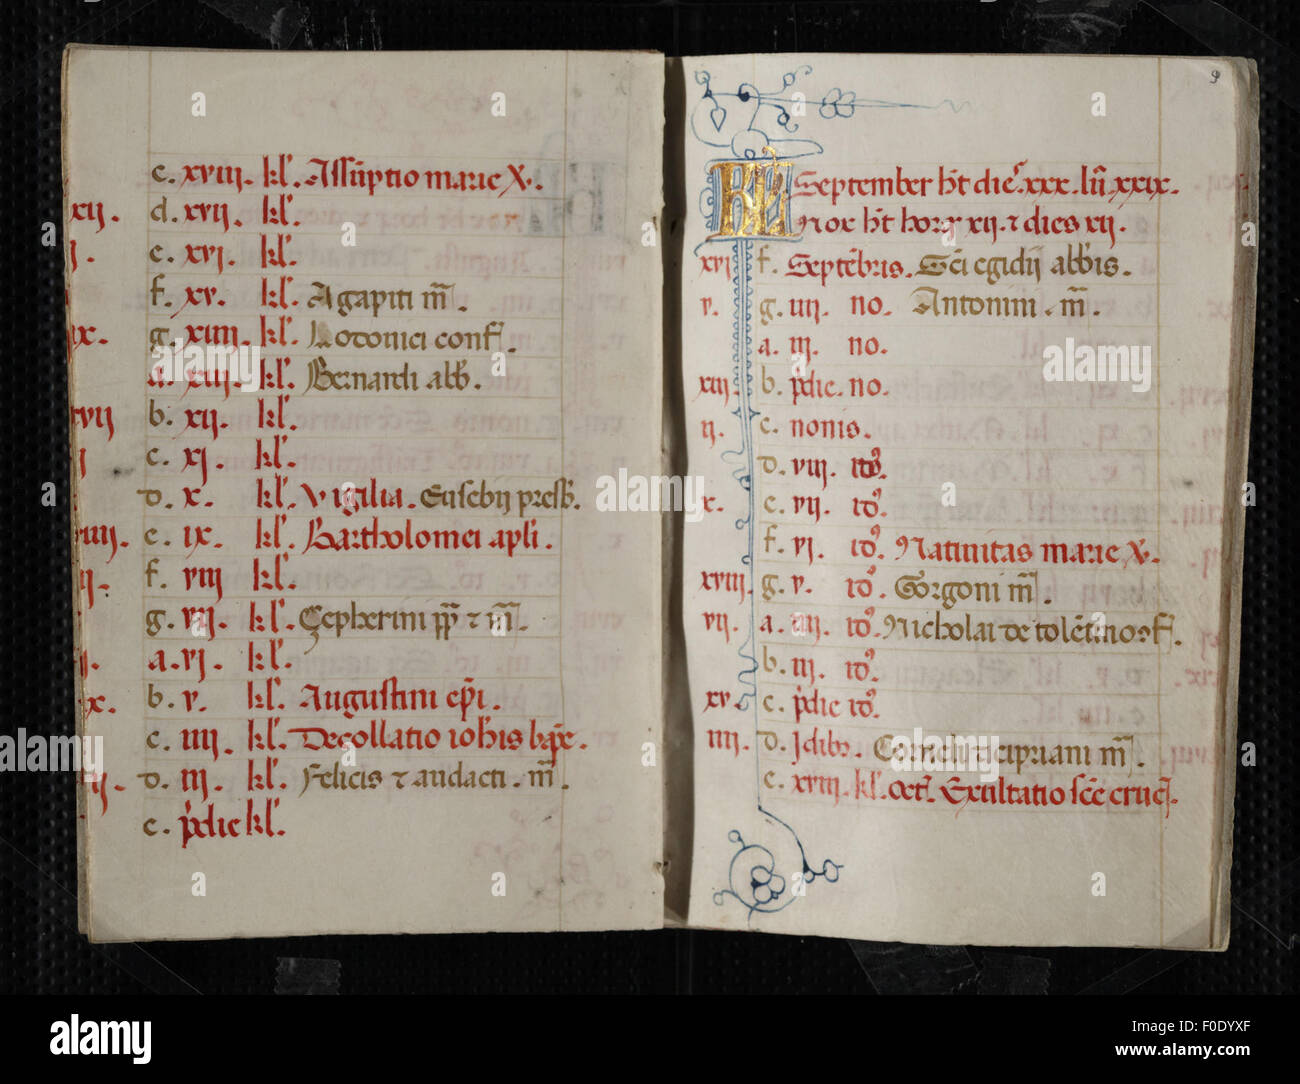 c. xviii. kl'. Assūptio marie v̄.
xii. d. xvii. kl'.
i. e. xvi. kl'.
f. xv. kl'. Agapiti m̄.
ix. g. xiiii. kl'. Lodouici conf.
a. xiii. kl'. Bernardi abb.
xvii b. xii. kl'.
c. xi. kl'.
d. x. kl'. Vigilia. Eusebij presb.
xiiii. e. ix. kl'. Bartholomei apl'i.
f. viii kl'.
g. vii. kl'. Çepherini pp̄ ⁊ m̄.
a. vi. kl'.
b. v. kl'. Augustini ep̄i.
c. iiii. kl'. Decollatio iohis bap̄te.
d. iii. kl'. Felicis ⁊ audacti. m̄.
e. p'die kl'.
9
KL September ht dies. xxx. lū. xxix.
Nox ht horas xii. ⁊ dies xii.
xvi f. Septēbris. Sc̄i egidij abbis.
v. g. iiii. no. Antonini. m̄.
a. iii. no.
xiii. b. p'die. no.
ii. c. nonis.
d. viii. id9.
x. e. vii. id9.
f. vi. id9. Natiuitas marie v̄.
xviii. g. v. id9. Gorgoni m̄.
vii. a. iiii. id9. Nicholai de tolētino 9f.
b. iii. id9.
xv. c. p'die id9.
iiii. d. Idib9. Cornelii ⁊ cipriani m̄.
e. xviii. kl'. oct'. Exaltatio sc̄e crucis.
alamy
Image ID: F0DYXF
www.alamy.com